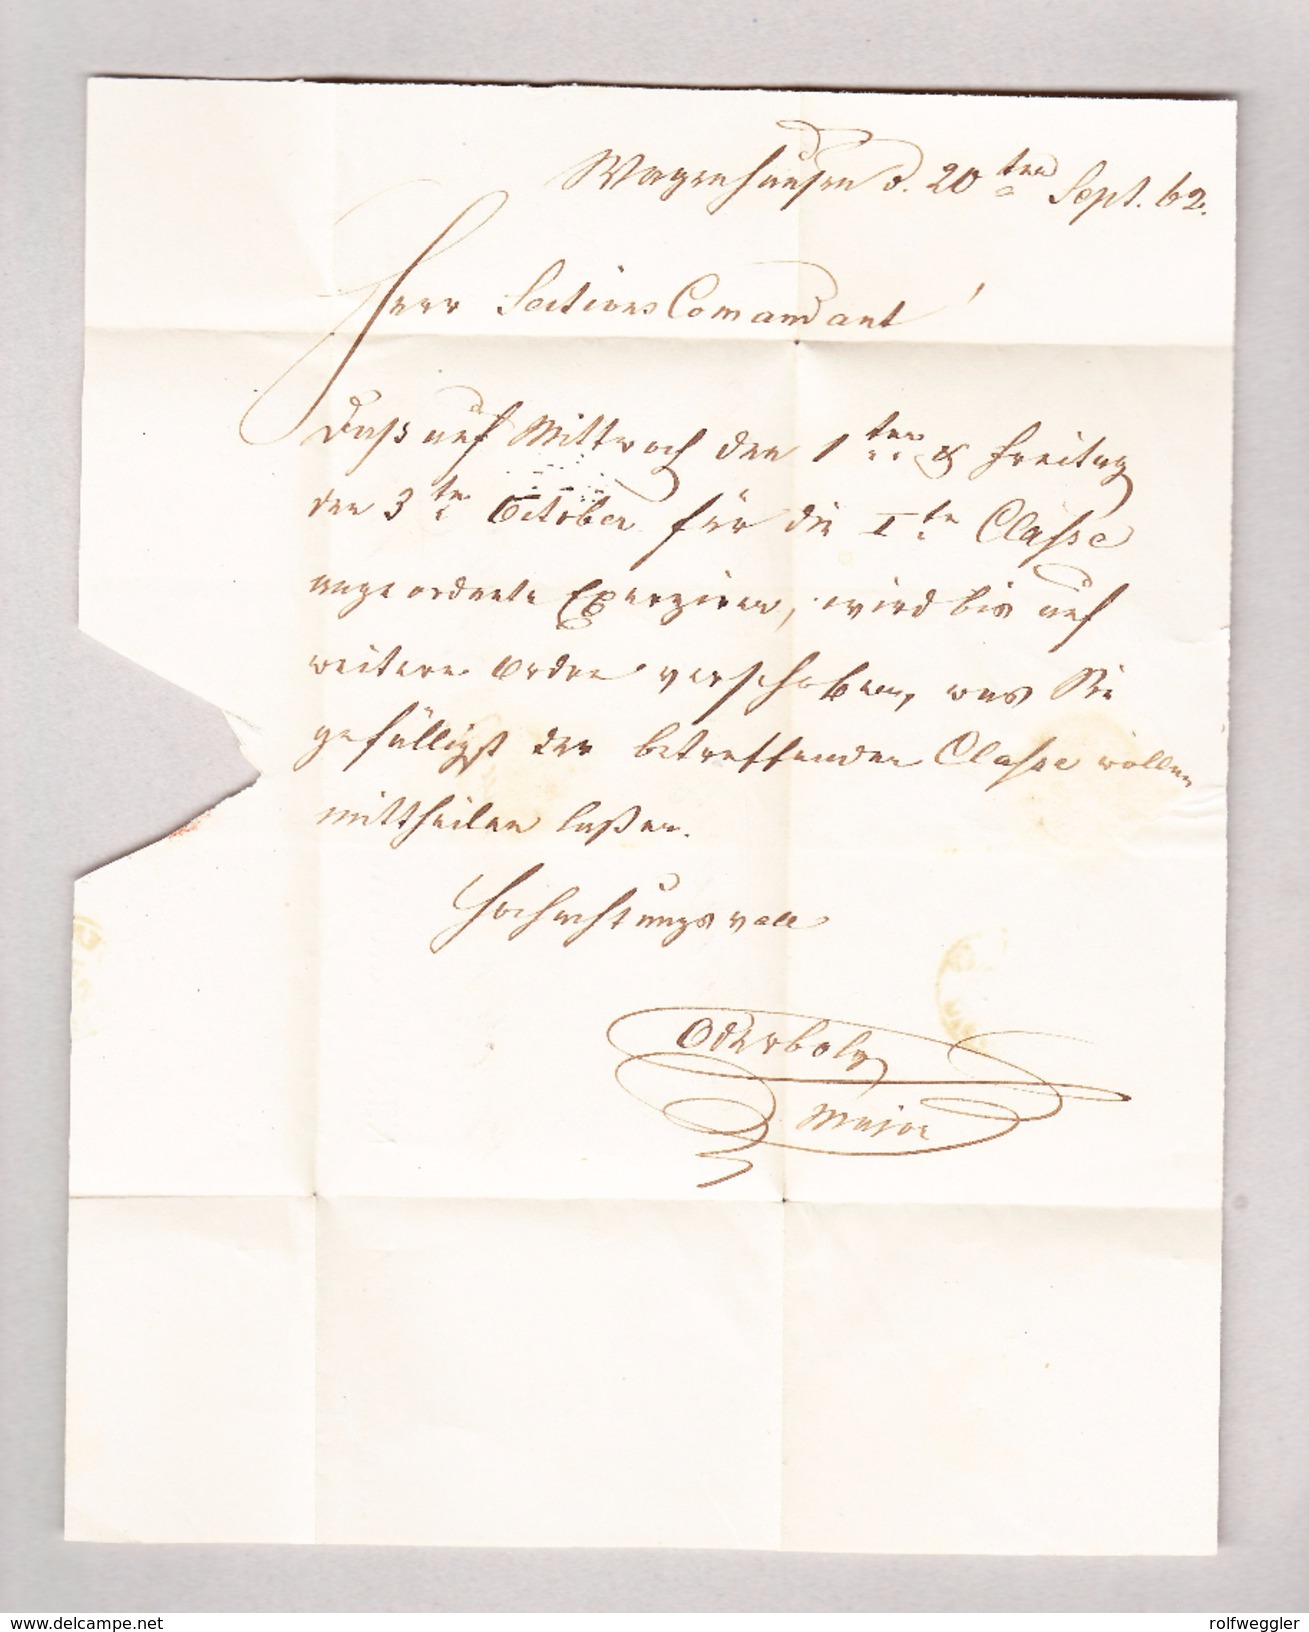 Wagenhausen d. 20ten Sept. 62.
Herr Sections Comandant!
Daß auf Mittwoch den 1ten & Freitag
den 3tn October für die Itn Classe
angeordnete Exerziren, wird bis auf
weitere Order verschoben, was Sie
gefälligst der betreffenden Classe wollen
mittheilen laßen.
Hochachtungsvoll
Oderbolz
Major
www.delcampe.net
rolfweggler